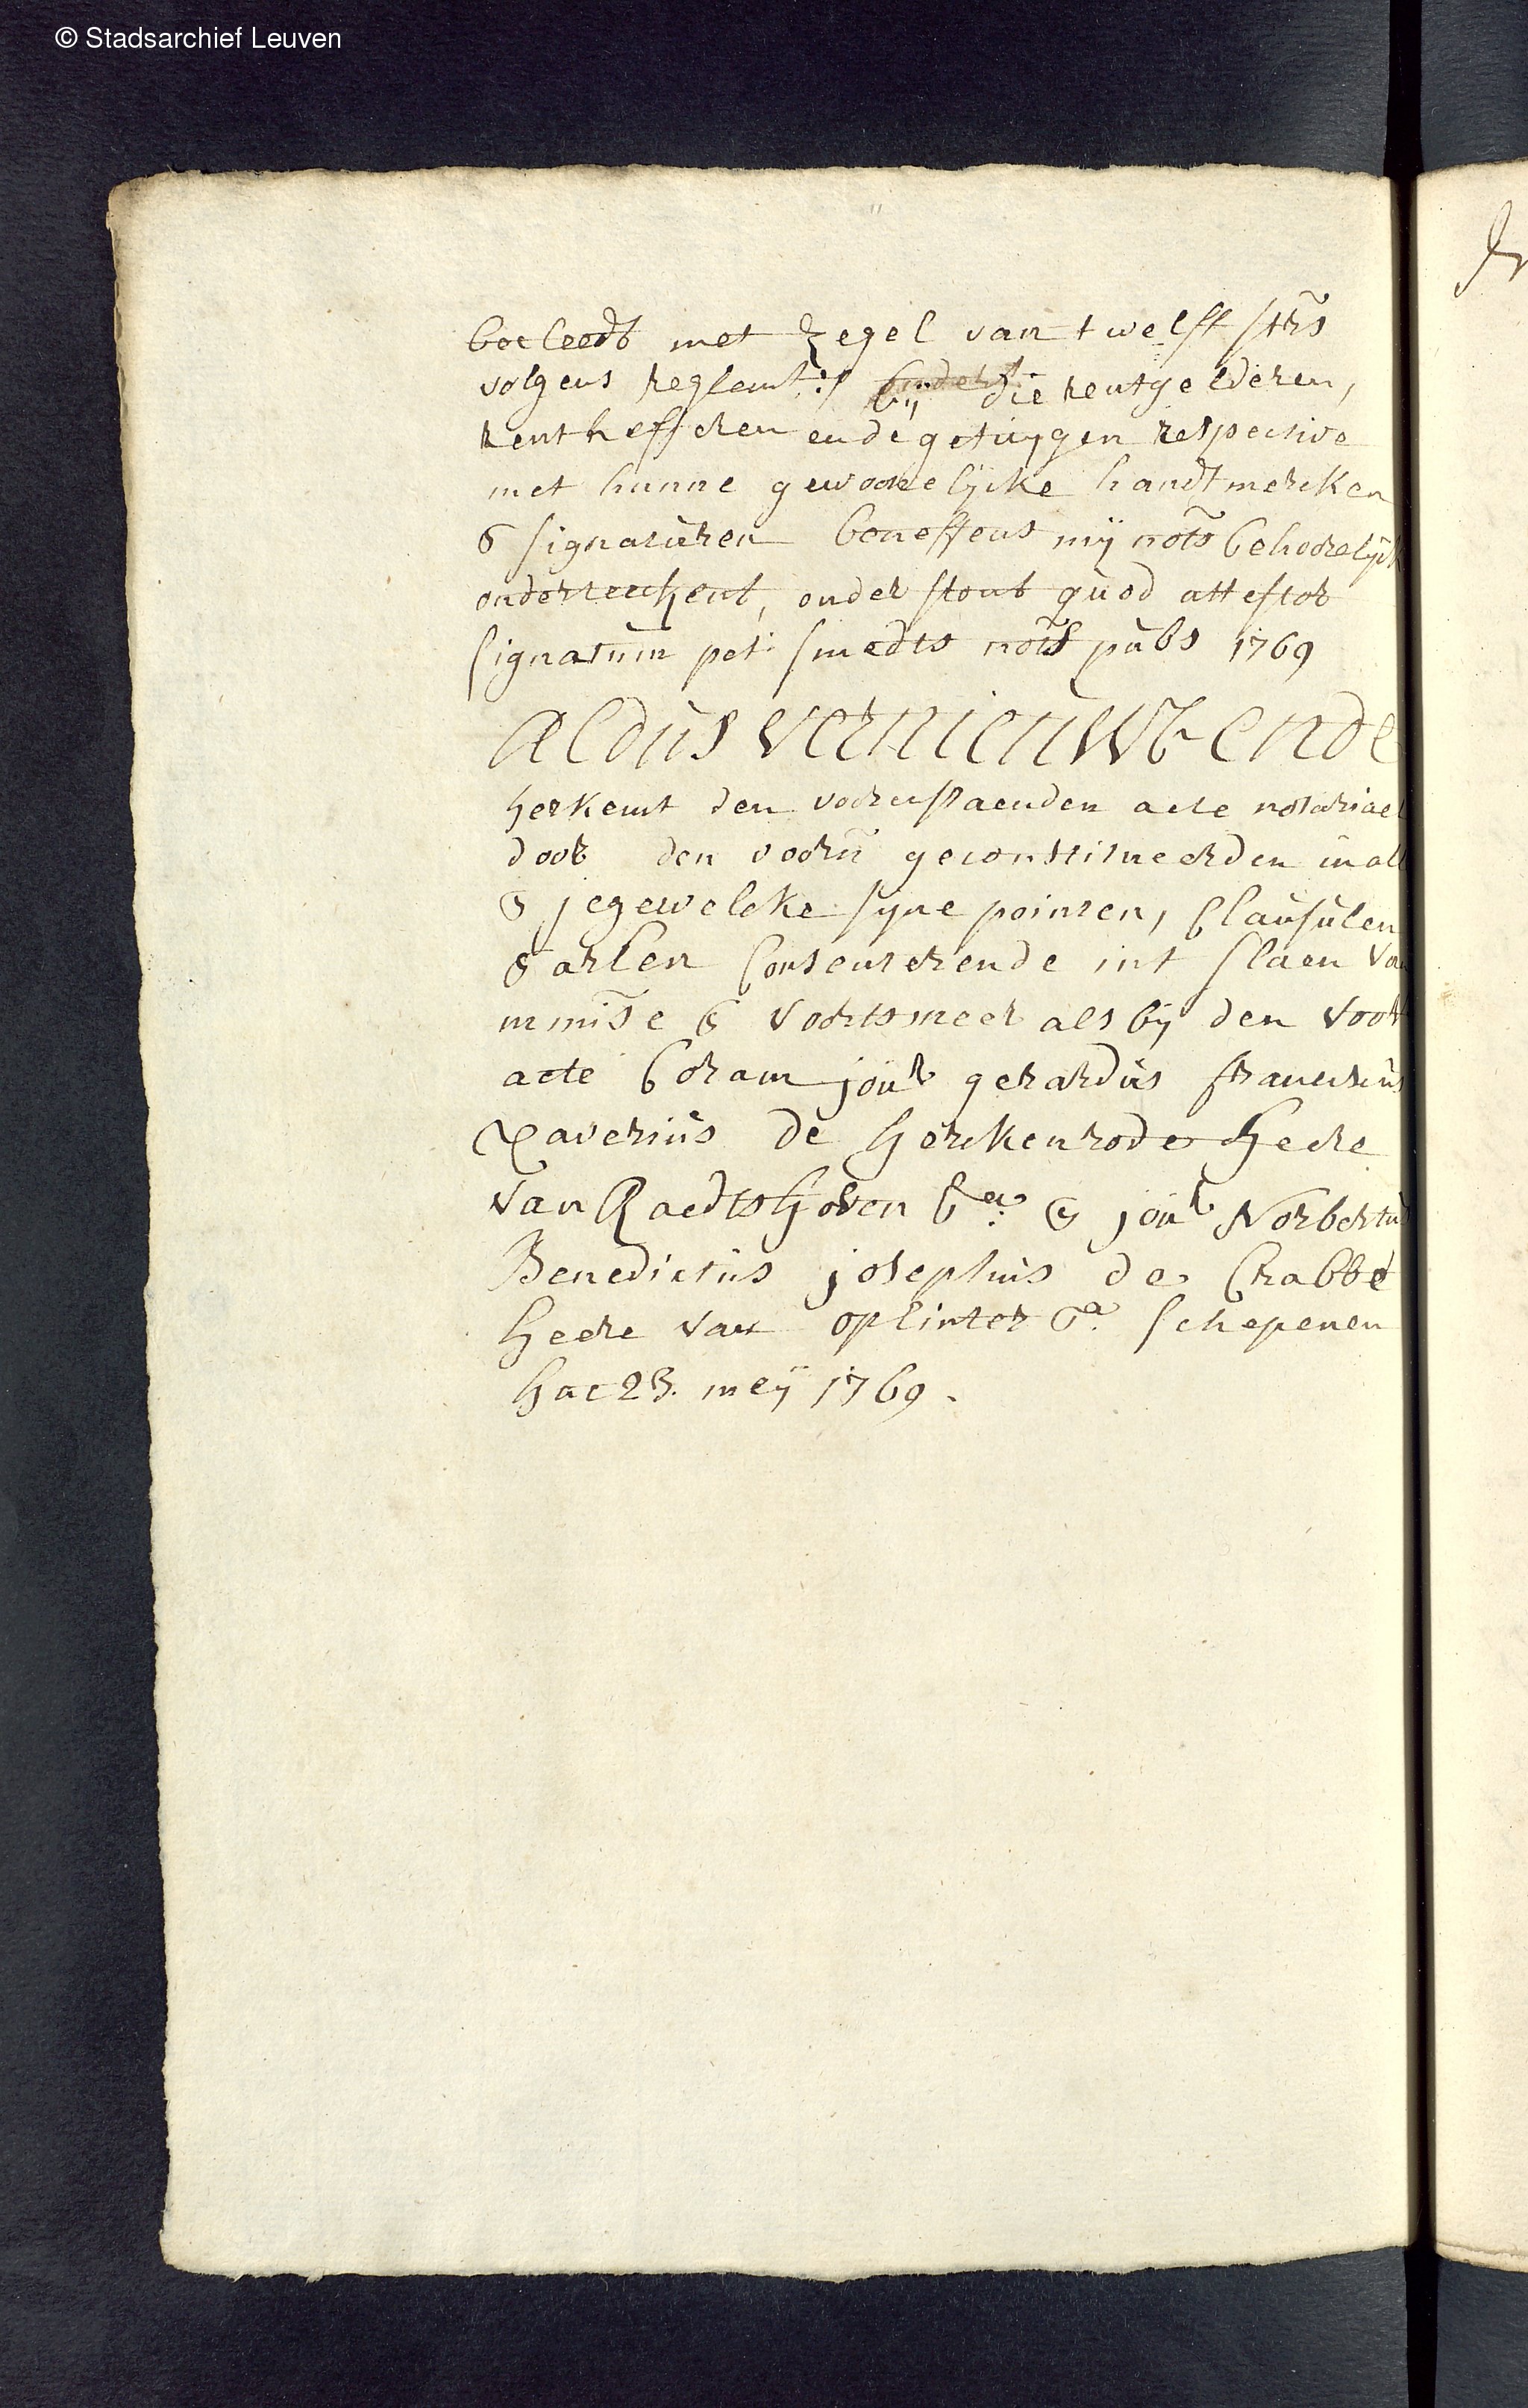 © Stadsarchief Leuven
becleedt met zegel van twelff strs
volgens reglemt:/ bij die rentgelderen,
rentheffers ende getuygen respective
met hunne gewoonelijcke handtmercken
& signaturen beneffens mij nots behoorelijck
onderteeckent, onderstont quod attestor
signatum pet: smedts nots pubs 1769
Aldus vernieuwt ende
herkent den voorenstaenden acte notariael
door den voorn geconstitueerden in all
& jegewelcke syne pointen, clausulen
& arlen consenterende int slaen van
mmise & voorts meer als bij den voor
acte Coram jonr gerardus franciscus
Xaverius de herckenrode heere
van Raedtshoven &a: & jonr Norbertus
Benedictus josephus de Crabbé
heere van oplinter &a: schepenen
hac 23. meij 1769.